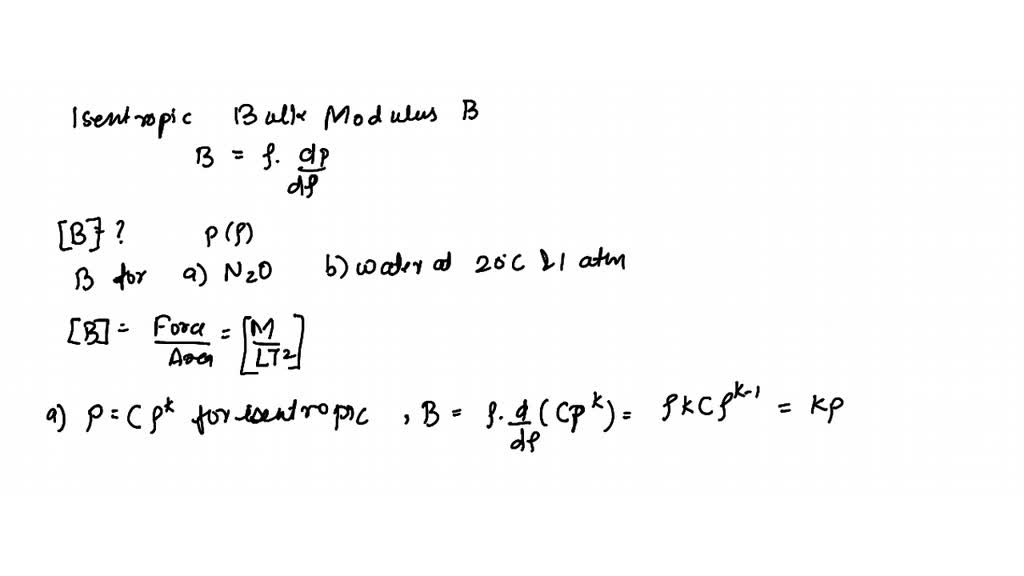 Isentropic Bulk Modulus B
B = ρ. dp/dρ
[B]? p(ρ)
B for a) N₂O b) water at 20°C & 1 atm
[B] = Force/Area = [M/LT²]
a) p = Cρᵏ for isentropic , B = ρ. d/dρ (Cρᵏ) = ρkCρᵏ⁻¹ = kp